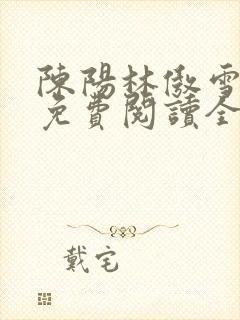 陳陽林傲雪
免費閱讀全
戴宅